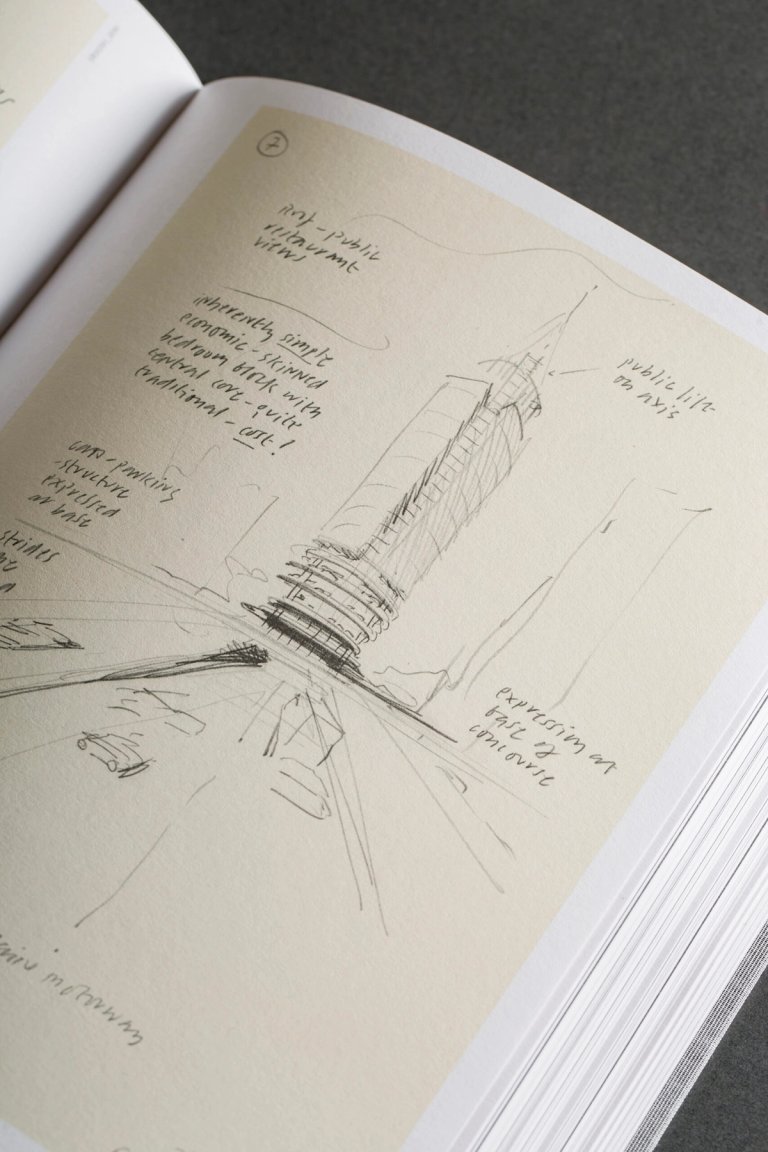 7
roof - public
restaurant
views
inherently simple
economic - skinned
bedroom block with
central core - quite
traditional - cost!
public lift
on axis
car - parking
structure
expressed
at base
strides
expression at
base of
concourse
motorway